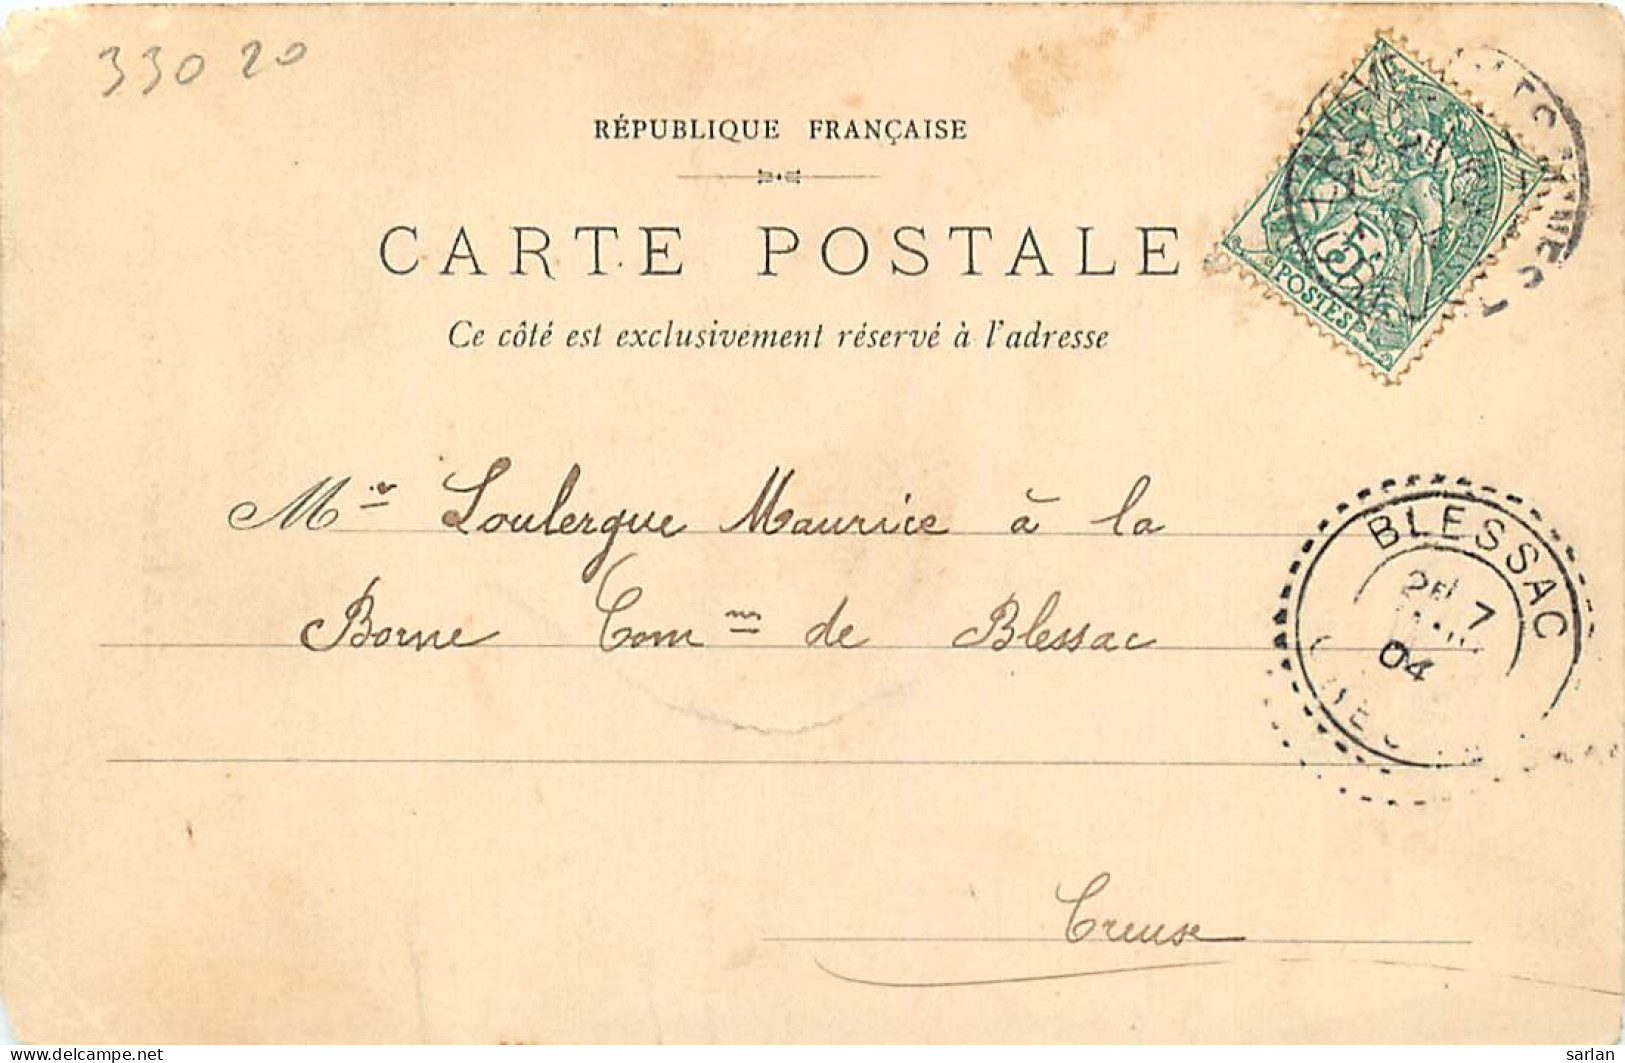 33020
RÉPUBLIQUE FRANÇAISE
CARTE POSTALE
Ce côté est exclusivement réservé à l'adresse
5
POSTES
Mr Loulergue Maurice à la
Borne Comne de Blessac
Creuse
BLESSAC
2E
7
04
delcampe.net
sarlan